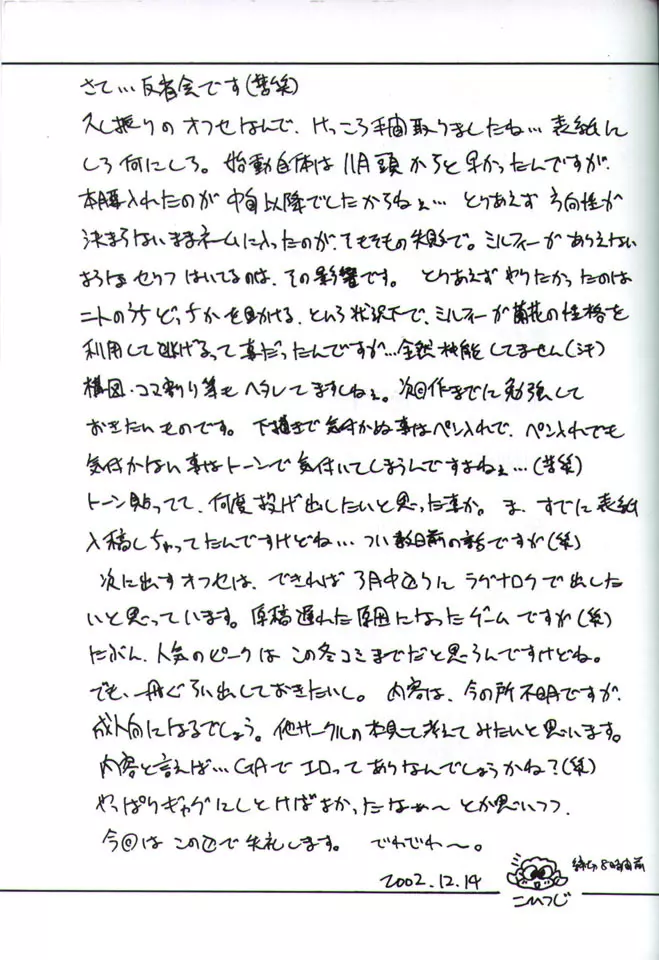 さて…反省会です(苦笑)
久し振りのオフセなんで、けっこう手間取りましたね…表紙に
しろ何にしろ。始動自体は11月頭からと早かったんですが、
本腰入れたのが中旬以降でしたからねぇ… とりあえず方向性が
決まらないままネームに入ったのが、そもそもの失敗で。ミルフィーがありえない
ようなセリフはいてるのは、その影響です。 とりあえずやりたかったのは
ニトのうちどっちかを助ける、という状況下で、ミルフィーが蘭花の性格を
利用して逃げるって事だったんですが…全然機能してません(汗)
構図・コマ割り等もヘタレてますしねぇ。次回作までに勉強して
おきたいものです。下描きで気付かぬ事はペン入れで、ペン入れでも
気付かない事はトーンで気付いてしまうんですよねぇ…(苦笑)
トーン貼ってて、何度投げ出したいと思った事か。ま、すでに表紙
入稿しちゃってたんですけどね…つい数日前の話ですが(笑)
次に出すオフセは、できれば3月中辺りにラグナロクで出した
いと思っています。原稿遅れた原因になったゲームですが(笑)
たぶん、人気のピークはこの冬コミまでだと思うんですけどね。
でも、一冊ぐらい出しておきたいし。 内容は、今の所不明ですが、
成人向になるでしょう。他サークルの本見て考えてみたいと思います。
内容と言えば…GAでエロってありなんでしょうかね?(笑)
やっぱりギャグにしとけばよかったなぁ〜とか思いつつ、
今回はこの辺で失礼します。 でわでわ〜。
2002.12.14
締切8時間前
こひつじ